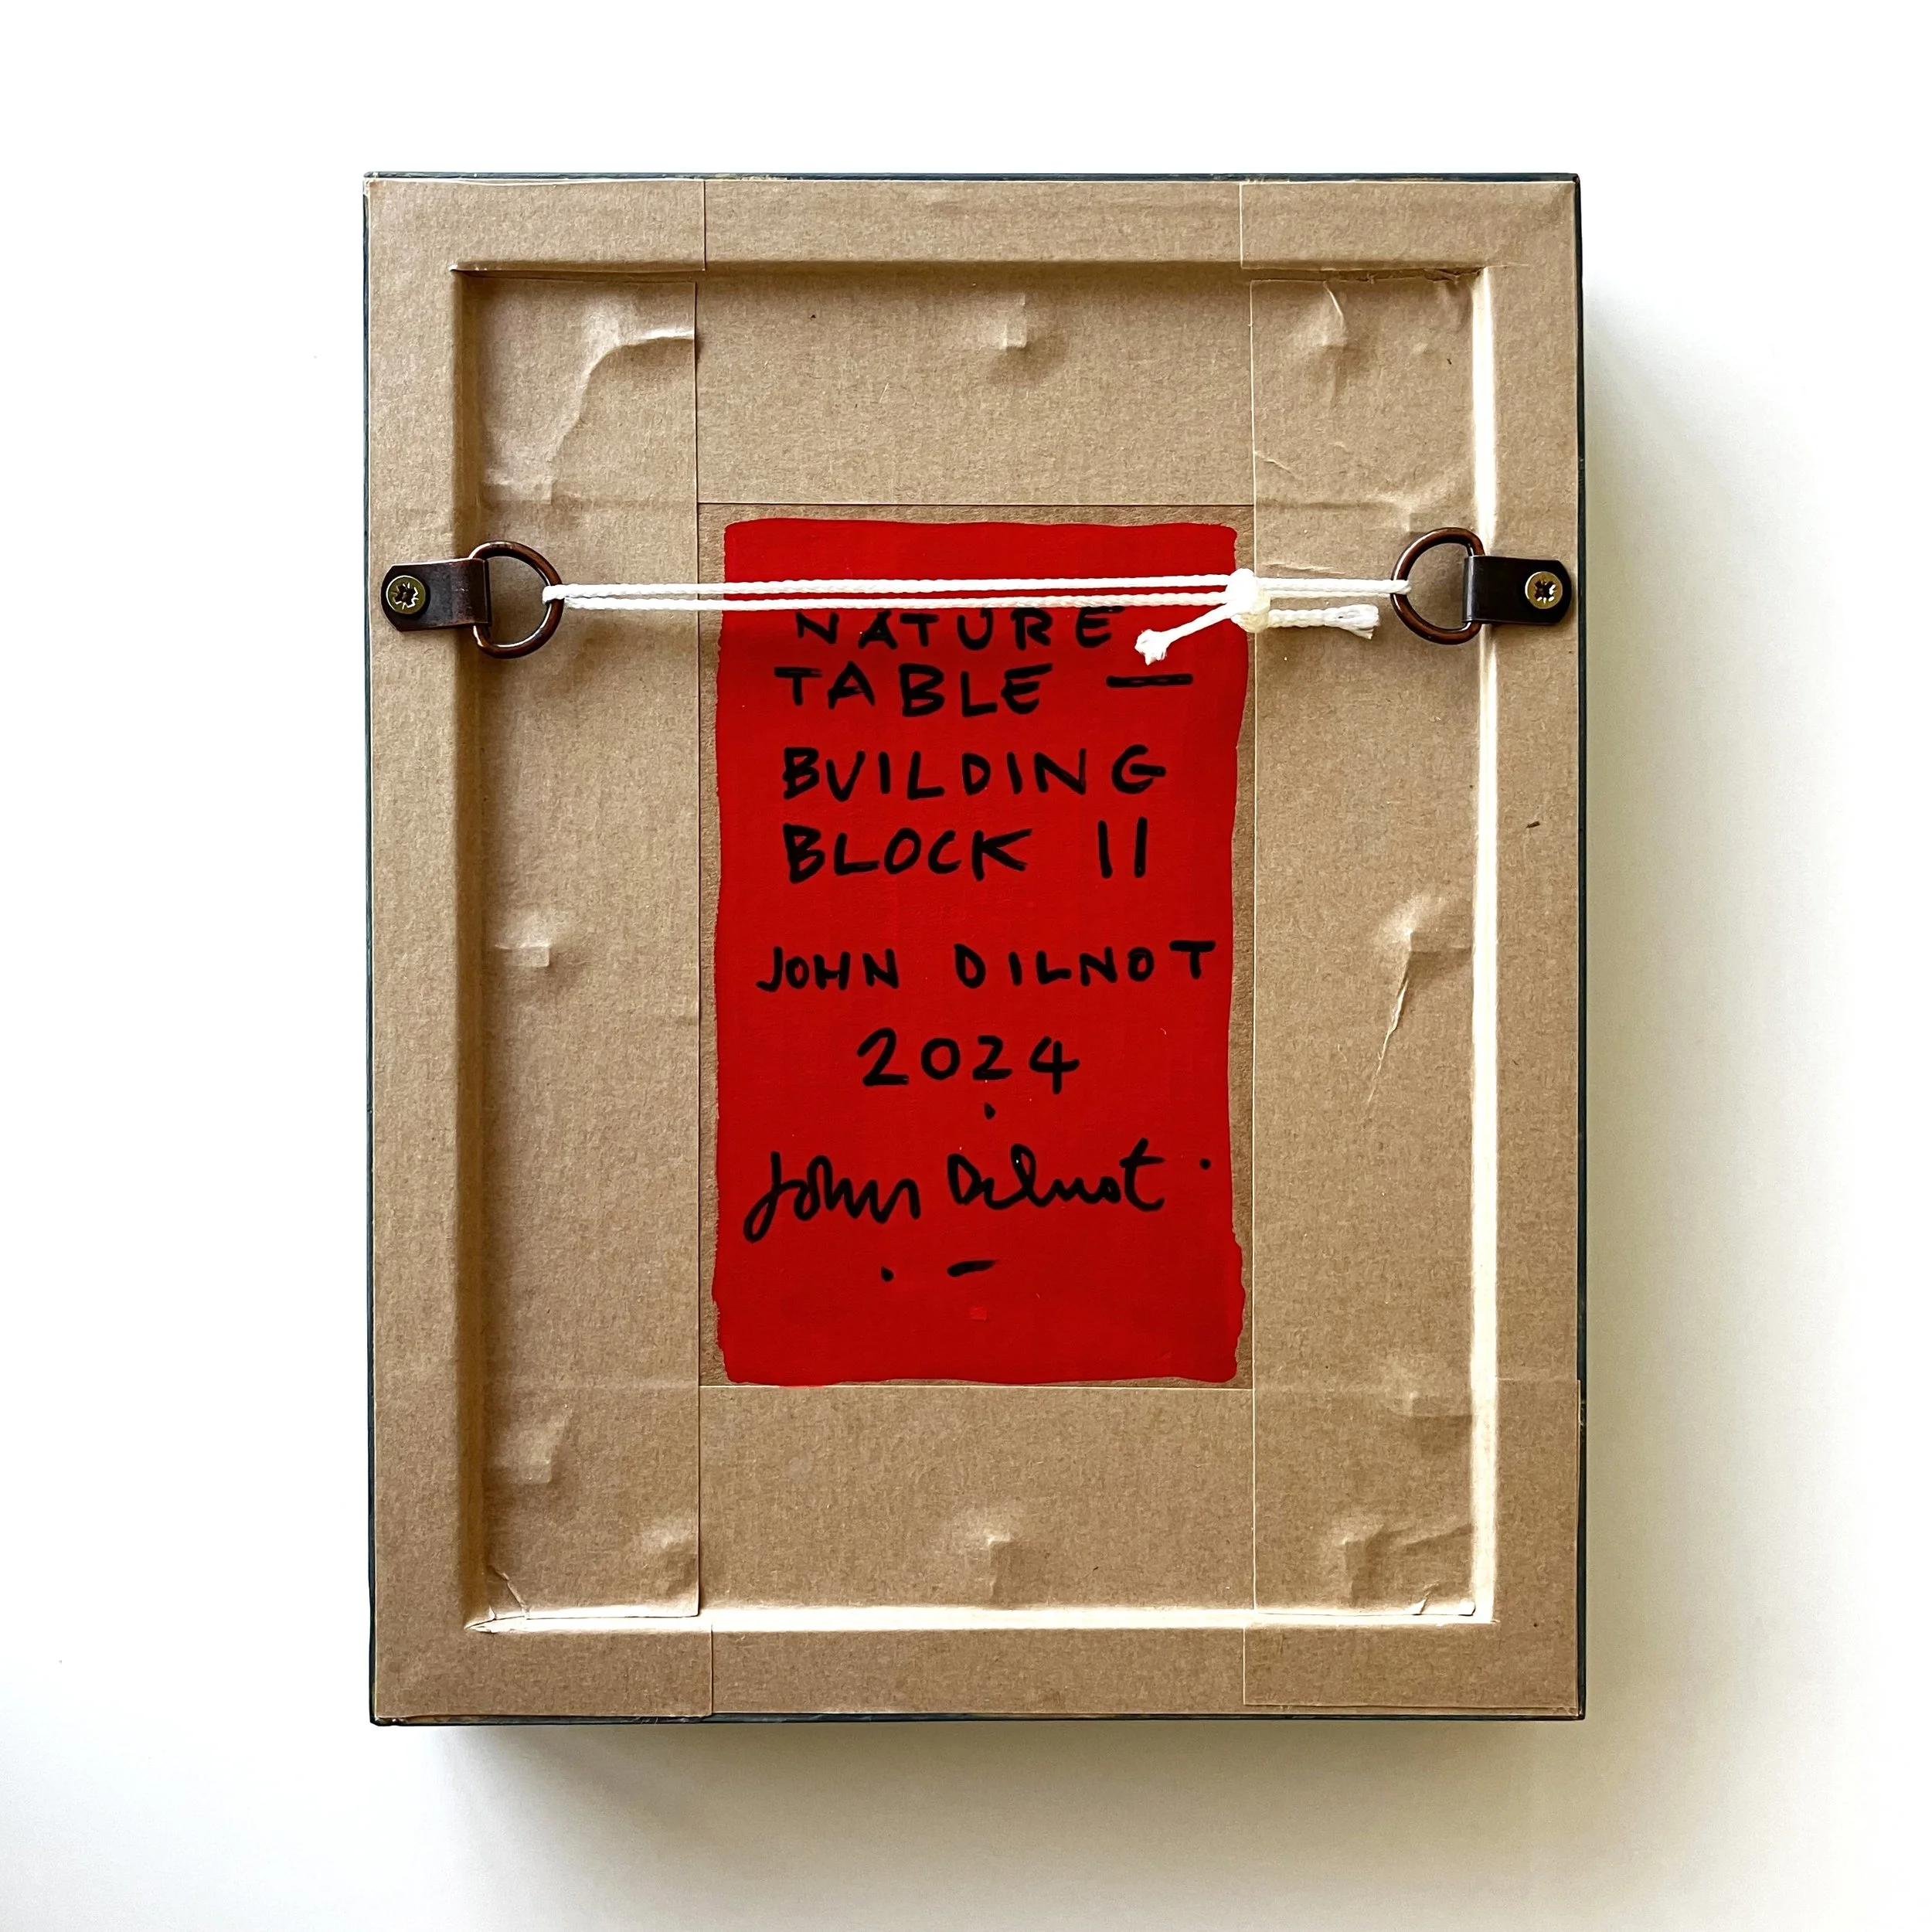 NATURE
TABLE —
BUILDING
BLOCK II
JOHN DILNOT
2024
John Dilnot